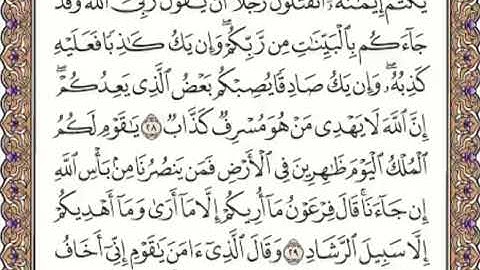 يَكْتُمُ إِيمَٰنَهُۥٓ أَتَقْتُلُونَ رَجُلًا أَن يَقُولَ رَبِّيَ ٱللَّهُ وَقَدْ
جَآءَكُم بِٱلْبَيِّنَٰتِ مِن رَّبِّكُمْ ۖ وَإِن يَكُ كَٰذِبًا فَعَلَيْهِ
كَذِبُهُۥ ۖ وَإِن يَكُ صَادِقًا يُصِبْكُم بَعْضُ ٱلَّذِى يَعِدُكُمْ ۖ
إِنَّ ٱللَّهَ لَا يَهْدِى مَنْ هُوَ مُسْرِفٌ كَذَّابٌ ۝٢٨ يَٰقَوْمِ لَكُمُ
ٱلْمُلْكُ ٱلْيَوْمَ ظَٰهِرِينَ فِى ٱلْأَرْضِ فَمَن يَنصُرُنَا مِنۢ بَأْسِ ٱللَّهِ
إِن جَآءَنَا ۚ قَالَ فِرْعَوْنُ مَآ أُرِيكُمْ إِلَّا مَآ أَرَىٰ وَمَآ أَهْدِيكُمْ
إِلَّا سَبِيلَ ٱلرَّشَادِ ۝٢٩ وَقَالَ ٱلَّذِىٓ ءَامَنَ يَٰقَوْمِ إِنِّىٓ أَخَافُ